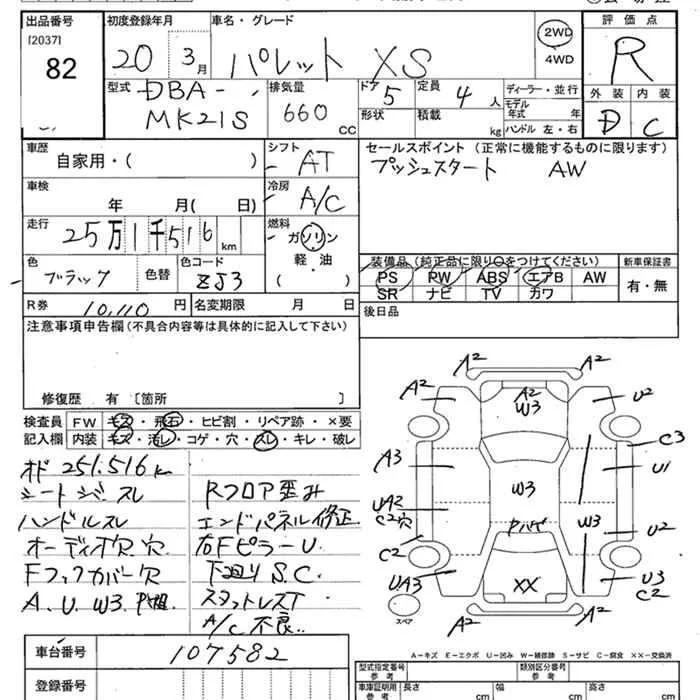 出品番号
[2037]
82
初度登録年月
20 3月
車名・グレード
パレット XS
2WD
4WD
評価点
R
外装 内装
D C
型式
DBA-
MK21S
排気量
660
CC
ドア 5
形状
定員 4 人
積載 kg
ディーラー・並行
モデル年式 年
ハンドル 左・右
車歴
自家用・( )
シフト
AT
セールスポイント (正常に機能するものに限ります)
プッシュスタート AW
車検
年 月( 日)
冷房
A/C
走行
25万1千516 km
燃料
ガソリン
軽・油
( )
色
ブラック
色替
色コード
ZJ3
装備品(純正品に限り○をつけてください)
PS PW ABS エアB AW
SR ナビ TV カワ
新車保証書
有・無
R券 10,110 円
名変期限 月 日
後日品
注意事項申告欄(不具合内容等は具体的に記入して下さい)
修復歴 有 〔箇所 〕
検査員
記入欄
FW キズ・飛石・ヒビ割・リペア跡・×要
内装 キズ・汚レ・コゲ・穴・スレ・キレ・破レ
オド 251,516km
シート シミ スレ
ハンドルスレ
オーディオ欠 穴
Fフックカバー欠
A.U.W3.
Rフロア歪み
エンドパネル修正
右FピラーU
下廻りS.C.
A/C不良
A2
A2
A2
A2
W3
U2
C3
A3
U1
W3
UA2
C2穴
W3
U2
C2
UA3
XX
U3
C2
A2
A2
スペア
A-キズ E-エクボ U-凹み W-補修跡 S-サビ C-腐食 XX-交換済
車台番号
107582
登録番号
型式指定番号
参考
類別区分番号
参考
車庫証明用
参考
長さ cm
幅 cm
高さ cm